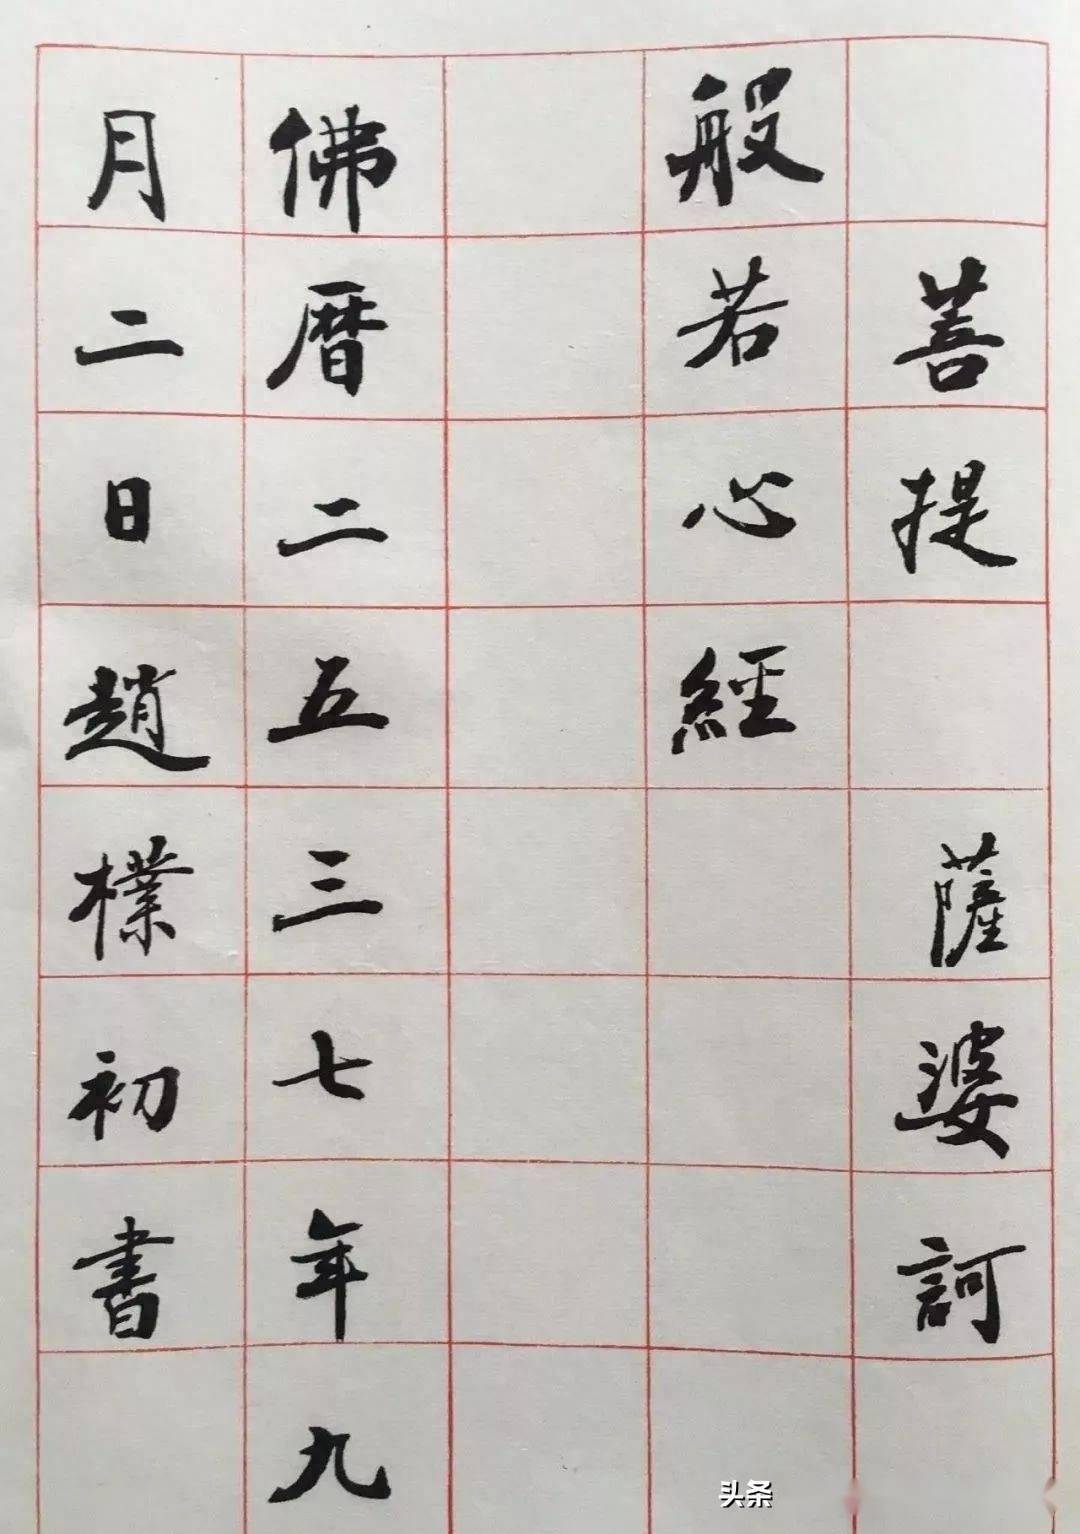 菩提 薩婆訶
般若心經
佛曆二五三七年九
月二日趙樸初書
头条